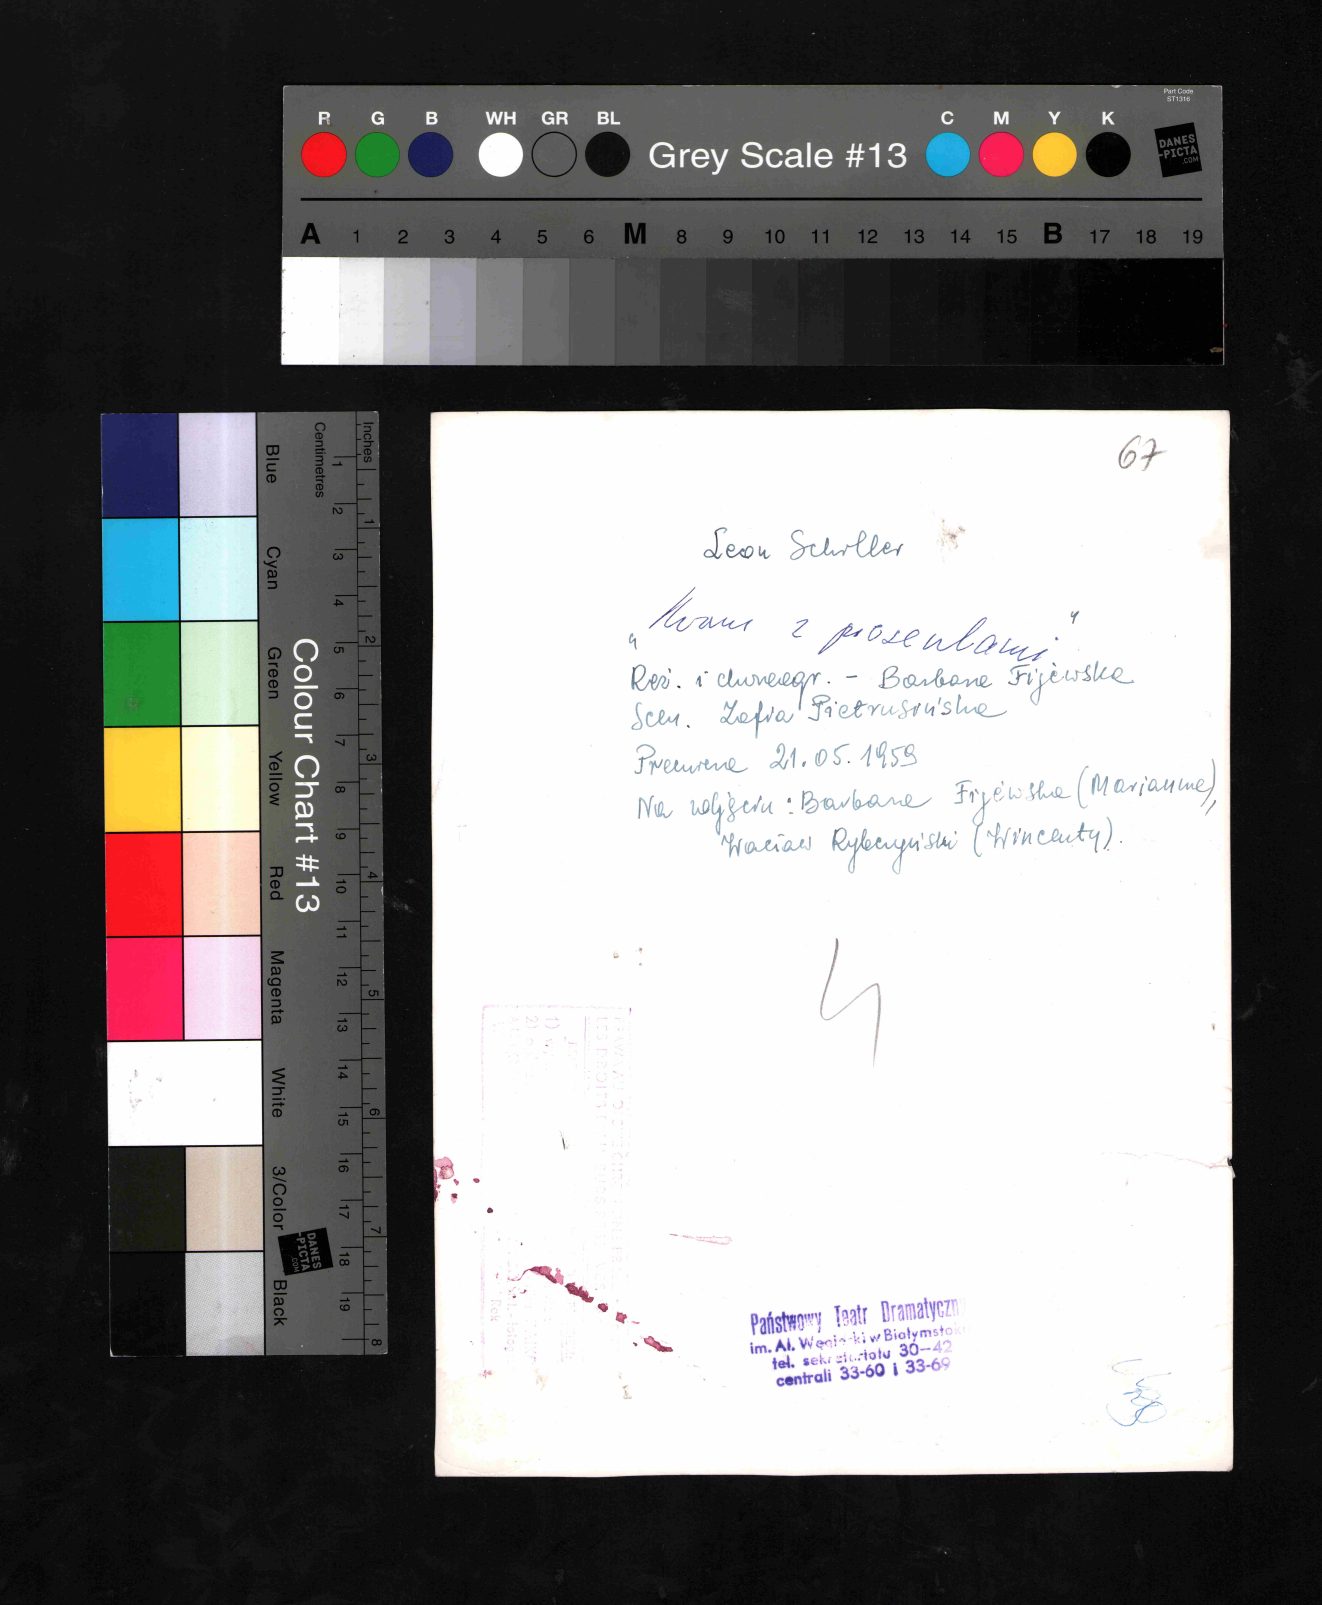 Part Code
ST1316
R G B WH GR BL
Grey Scale #13
C M Y K
DANES
-PICTA
.COM
A 1 2 3 4 5 6 M 8 9 10 11 12 13 14 15 B 17 18 19
Colour Chart #13
Blue
Cyan
Green
Yellow
Red
Magenta
White
3/Color
Black
Centimetres
1 2 3 4 5 6 7 8 9 10 11 12 13 14 15 16 17 18 19
Inches
1 2 3 4 5 6 7 8
DANES
-PICTA
.COM
67
Leon Schiller
„Kram z piosenkami”
Reż. i choreogr. - Barbara Fijewska
Scen. Zofia Pietrusińska
Premiera 21.05.1959
Na zdjęciu: Barbara Fijewska (Marianna),
Wacław Rybczyński (Wincenty).
Państwowy Teatr Dramatyczn
im. Al. Węgierki w Białymstoku
tel. sekretariatu 30-42
centrali 33-60 i 33-69